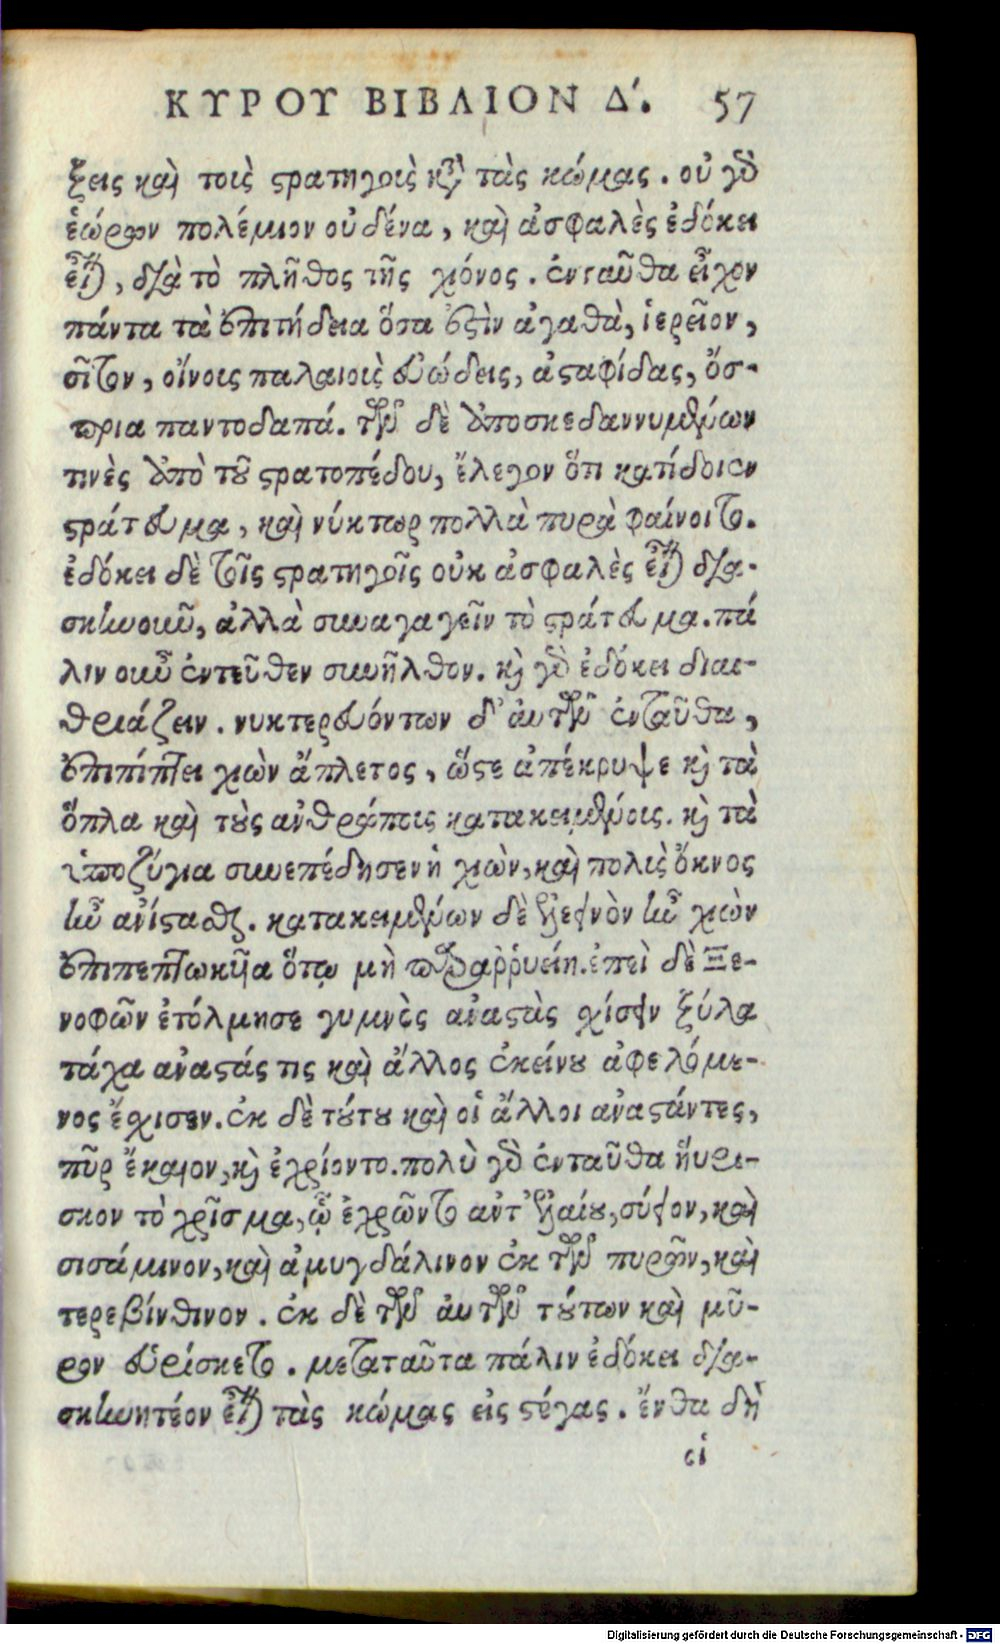 ΚΥΡΟΥ ΒΙΒΛΙΟΝ Δ΄. 57
ξεις καὶ τοῖς στρατηγοῖς κατὰ τὰς κώμας. οὐ γὰρ
ἑώρων πολέμιον οὐδένα, καὶ ἀσφαλὲς ἐδόκει
εἶναι, διὰ τὸ πλῆθος τῆς χιόνος. ἐνταῦθα εἶχον
πάντα τὰ ἐπιτήδεια ὅσα ἐστὶν ἀγαθὰ, ἱερεῖον,
σῖτον, οἴνοις παλαιοῖς εὐώδεις, ἀσταφίδας, ὄσ-
πρια παντοδαπά. τῶν δὲ ἀποσκεδαννυμένων
τινὲς ἀπὸ τοῦ στρατοπέδου, ἔλεγον ὅτι κατίδοιεν
στράτευμα, καὶ νύκτωρ πολλὰ πυρὰ φαίνοιτο.
ἐδόκει δὲ τοῖς στρατηγοῖς οὐκ ἀσφαλὲς εἶναι δια-
σκηνοῦν, ἀλλὰ συναγαγεῖν τὸ στράτευμα. πά
λιν οὖν ἐντεῦθεν συνῆλθον. καὶ γὰρ ἐδόκει διαι-
θριάζειν. νυκτερευόντων δ' αὐτῶν ἐνταῦθα,
ἐπιπίπτει χιὼν ἄπλετος, ὥστε ἀπέκρυψε καὶ τὰ
ὅπλα καὶ τοὺς ἀνθρώποις κατακειμένοις. καὶ τὰ
ὑποζύγια συνεπέδησεν ἡ χιὼν, καὶ πολὺς ὄκνος
ἦν ἀνίστασθαι. κατακειμένων δὲ ἐλεεινὸν ἦν χιὼν
ἐπιπεπτωκυῖα ὅτῳ μὴ παραῤῥυείη. ἐπεὶ δὲ Ξε-
νοφῶν ἐτόλμησε γυμνὸς ἀναστὰς σχίσειν ξύλα
τάχα ἀναστάς τις καὶ ἄλλος ἐκείνου ἀφελόμε-
νος ἔσχισεν. ἐκ δὲ τούτου καὶ οἱ ἄλλοι ἀναστάντες,
πῦρ ἔκαιον, καὶ ἐχρίοντο. πολὺ γὰρ ἐνταῦθα ηὕρι-
σκον τὸ χρῖσμα, ᾧ ἐχρῶντο ἀντ' ἐλαίου, σύειον, καὶ
σισάμινον, καὶ ἀμυγδάλινον ἐκ τῶν πυρῶν, καὶ
τερεβίνθινον. ἐκ δὲ τῶν αὐτῶν τούτων καὶ μῦ-
ρον εὑρίσκετο. μετὰ ταῦτα πάλιν ἐδόκει δια-
σκηνητέον εἶναι τὰς κώμας εἰς στέγας. ἔνθα δὴ
οἱ
Digitalisierung gefördert durch die Deutsche Forschungsgemeinschaft - DFG